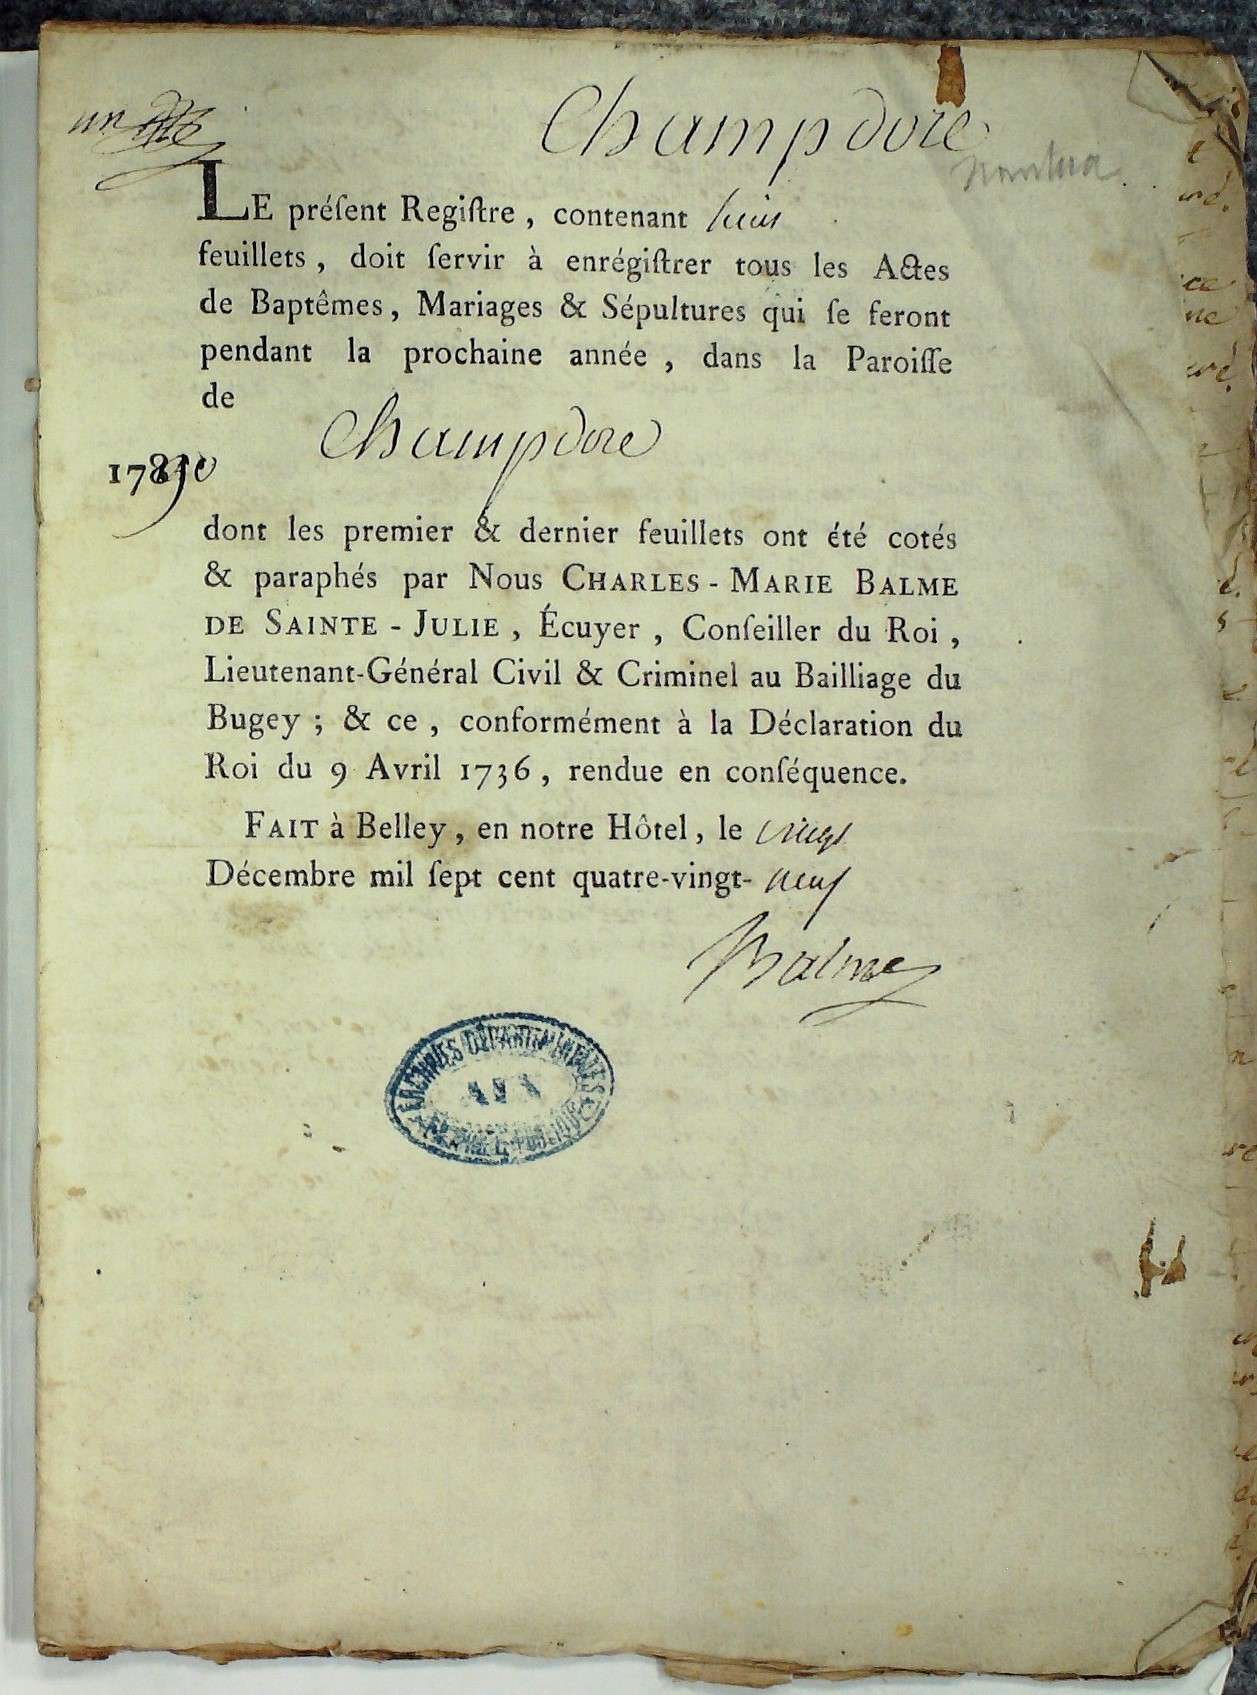 un
Champdore
Nantua
LE préſent Regiſtre, contenant huit
feuillets, doit ſervir à enrégiſtrer tous les Actes
de Baptêmes, Mariages & Sépultures qui ſe feront
pendant la prochaine année, dans la Paroiſſe
de
Champdore
1790
dont les premier & dernier feuillets ont été cotés
& paraphés par Nous CHARLES-MARIE BALME
DE SAINTE-JULIE, Écuyer, Conſeiller du Roi,
Lieutenant-Général Civil & Criminel au Bailliage du
Bugey; & ce, conformément à la Déclaration du
Roi du 9 Avril 1736, rendue en conſéquence.
FAIT à Belley, en notre Hôtel, le vingt
Décembre mil ſept cent quatre-vingt-neuf
Balme
ARCHIVES DÉPARTEMENTALES
AIN